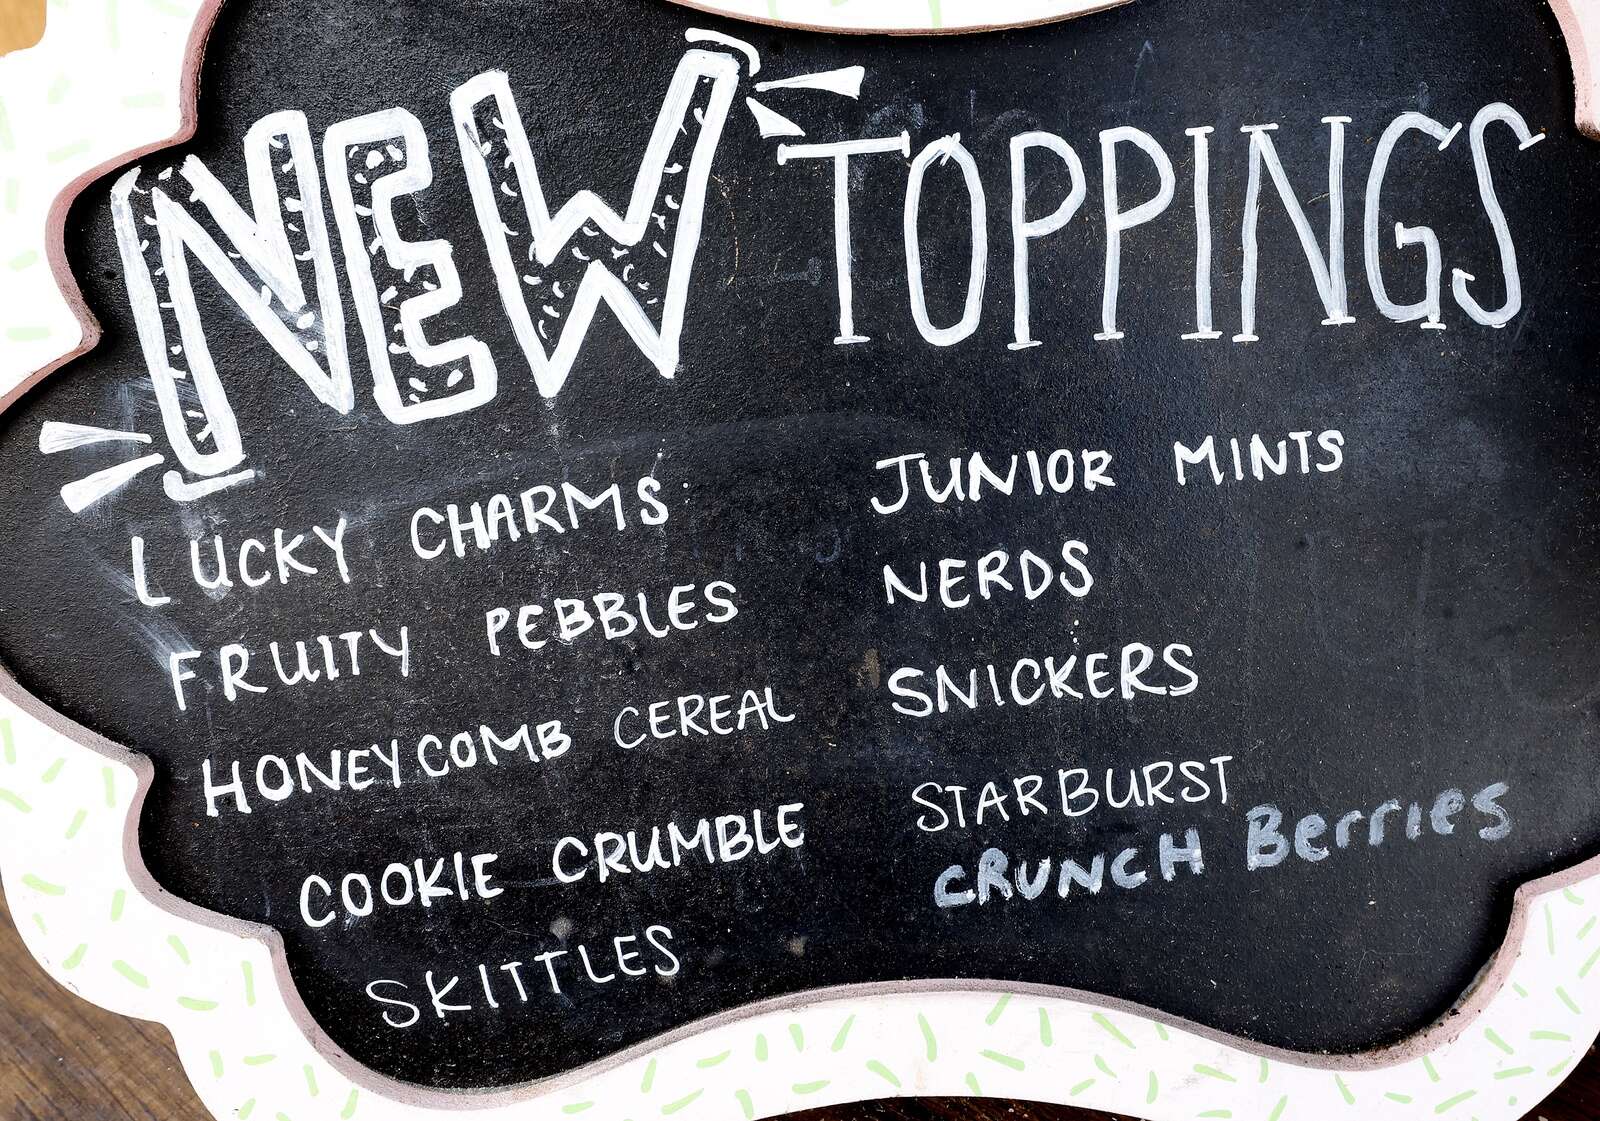 NEW TOPPINGS
LUCKY CHARMS
FRUITY PEBBLES
HONEYCOMB CEREAL
COOKIE CRUMBLE
SKITTLES
JUNIOR MINTS
NERDS
SNICKERS
STARBURST
CRUNCH Berries